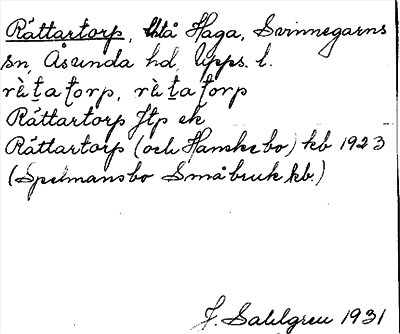 Rättartorp, Haga, Svinnegarns
sn, Åsunda hd, Upps. l.
rὲṯa ƫorp, rὲṯa ƫorp
Rättartorp Jtp ek
Rättartorp (och Hanskebo) kb 1923
(Spelmansbo Småbruk kb.)
J. Sahlgren 1931